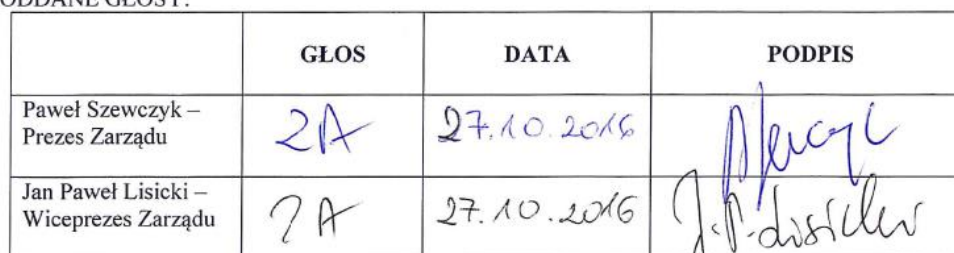 ODDANE GŁOSY:
GŁOS DATA PODPIS
Paweł Szewczyk –
Prezes Zarządu
ZA 27.10.2016
Jan Paweł Lisicki –
Wiceprezes Zarządu
ZA 27.10.2016 J.P. Lisicki